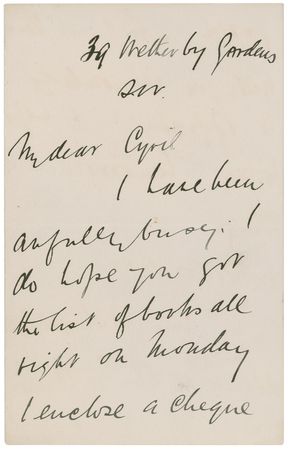 39 Wetherby Gardens
S.W.
My dear Cyril
I have been
awfully busy. I
do hope you got
the list of books all
right on Monday
I enclose a cheque